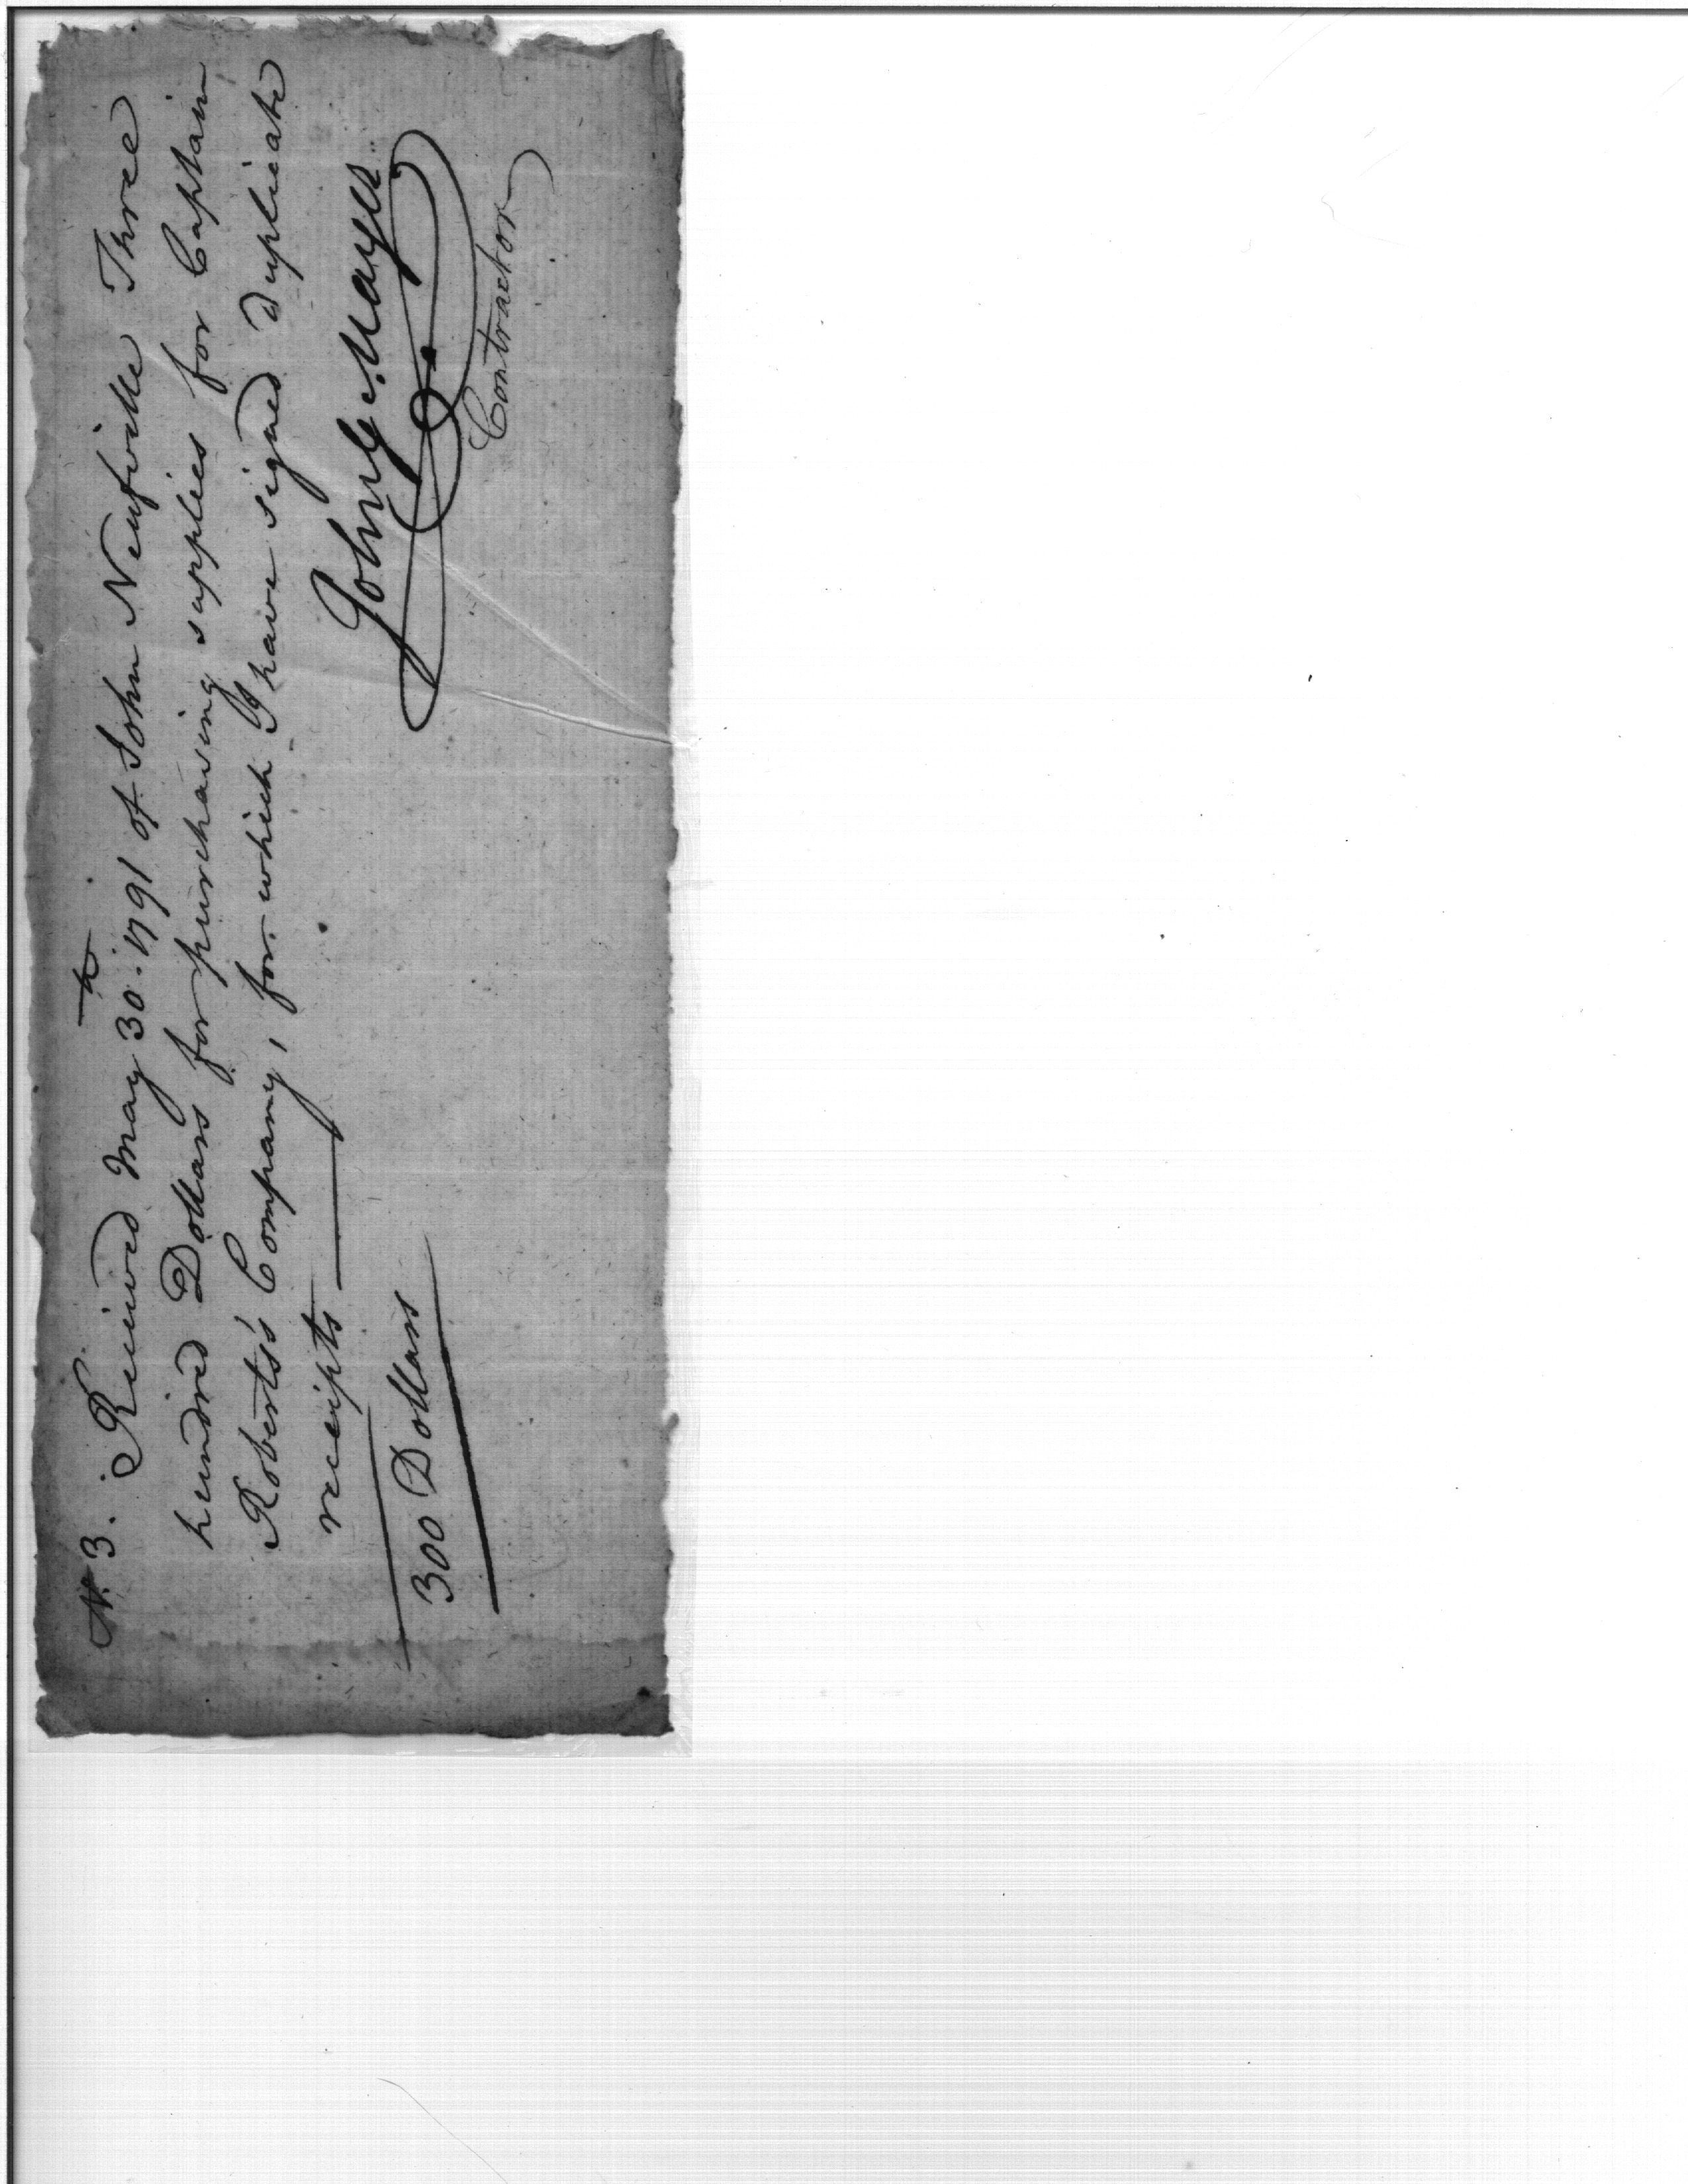 No 3. Received May 30th. 1791 of John Neufville Three
hundred Dollars for purchasing supplies for Captain
Roberts's Company, for which I have signed duplicate
receipts
300 Dollars
John G. Mayer
Contractor